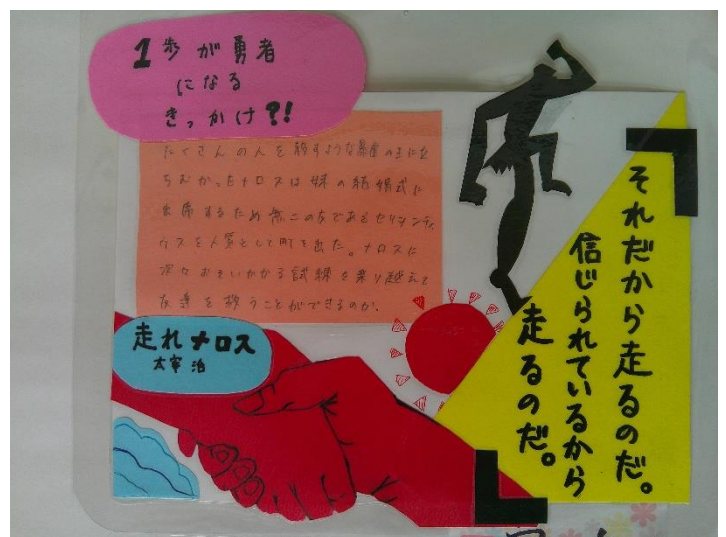 1歩が勇者
になる
きっかけ?!
たくさんの人を殺すような暴虐の王に立
ちむかったメロスは妹の結婚式に
出席するため無二の友であるセリヌンティ
ウスを人質として町を出た。メロスに
次々おそいかかる試練を乗り越えて
友達を救うことができるのか。
走れメロス
太宰治
『それだから走るのだ。
信じられているから
走るのだ。』